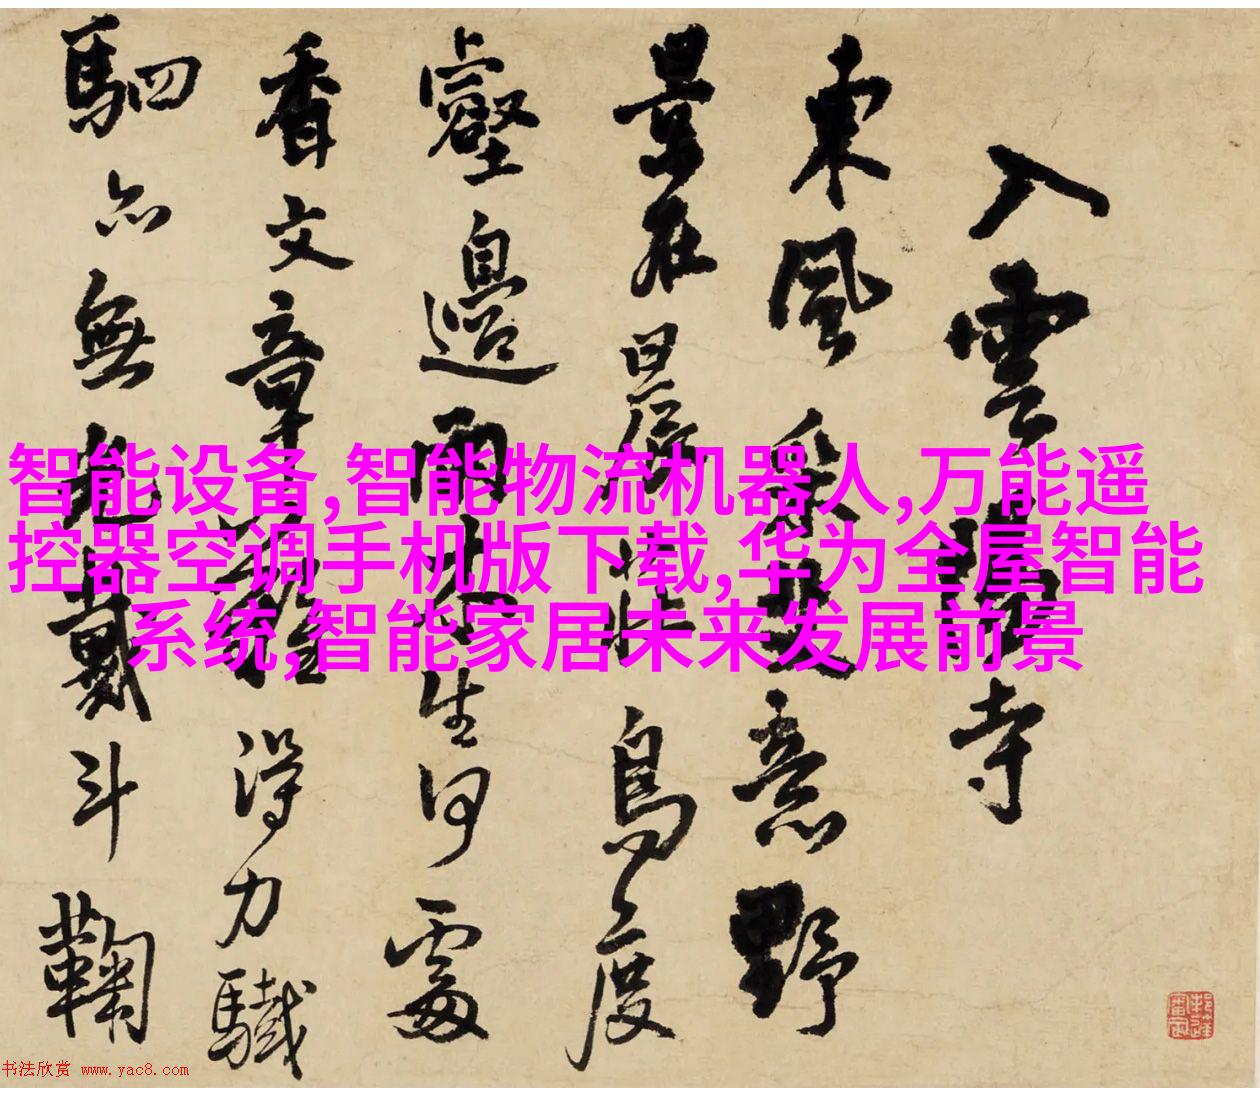 入雲寺
東風意野
景在晨鳥度
壑邊雨生何處
香文章得力驖
駟亦無戴斗鞠
智能设备,智能物流机器人,万能遥
控器空调手机版下载,华为全屋智能
系统,智能家居未来发展前景
书法欣赏 www.yac8.com